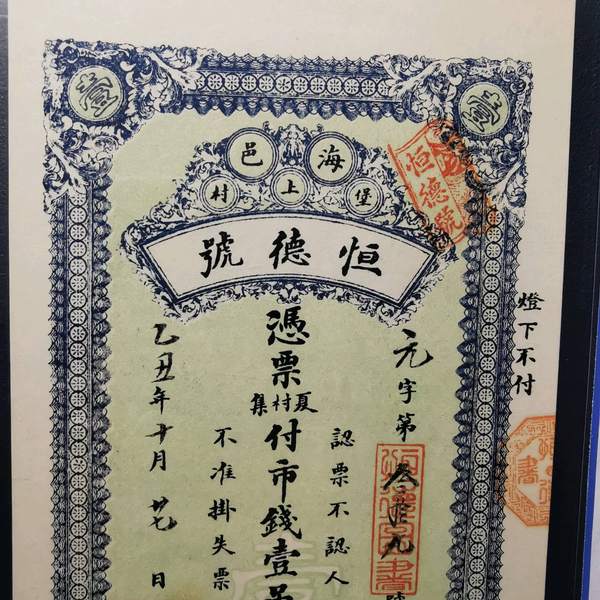 壹
壹
海邑
堡上村
恒德號
恒德號
燈下不付
元字第
認票不認人
憑票
夏村集
付市錢壹
不准掛失票
乙丑年十月廿七日